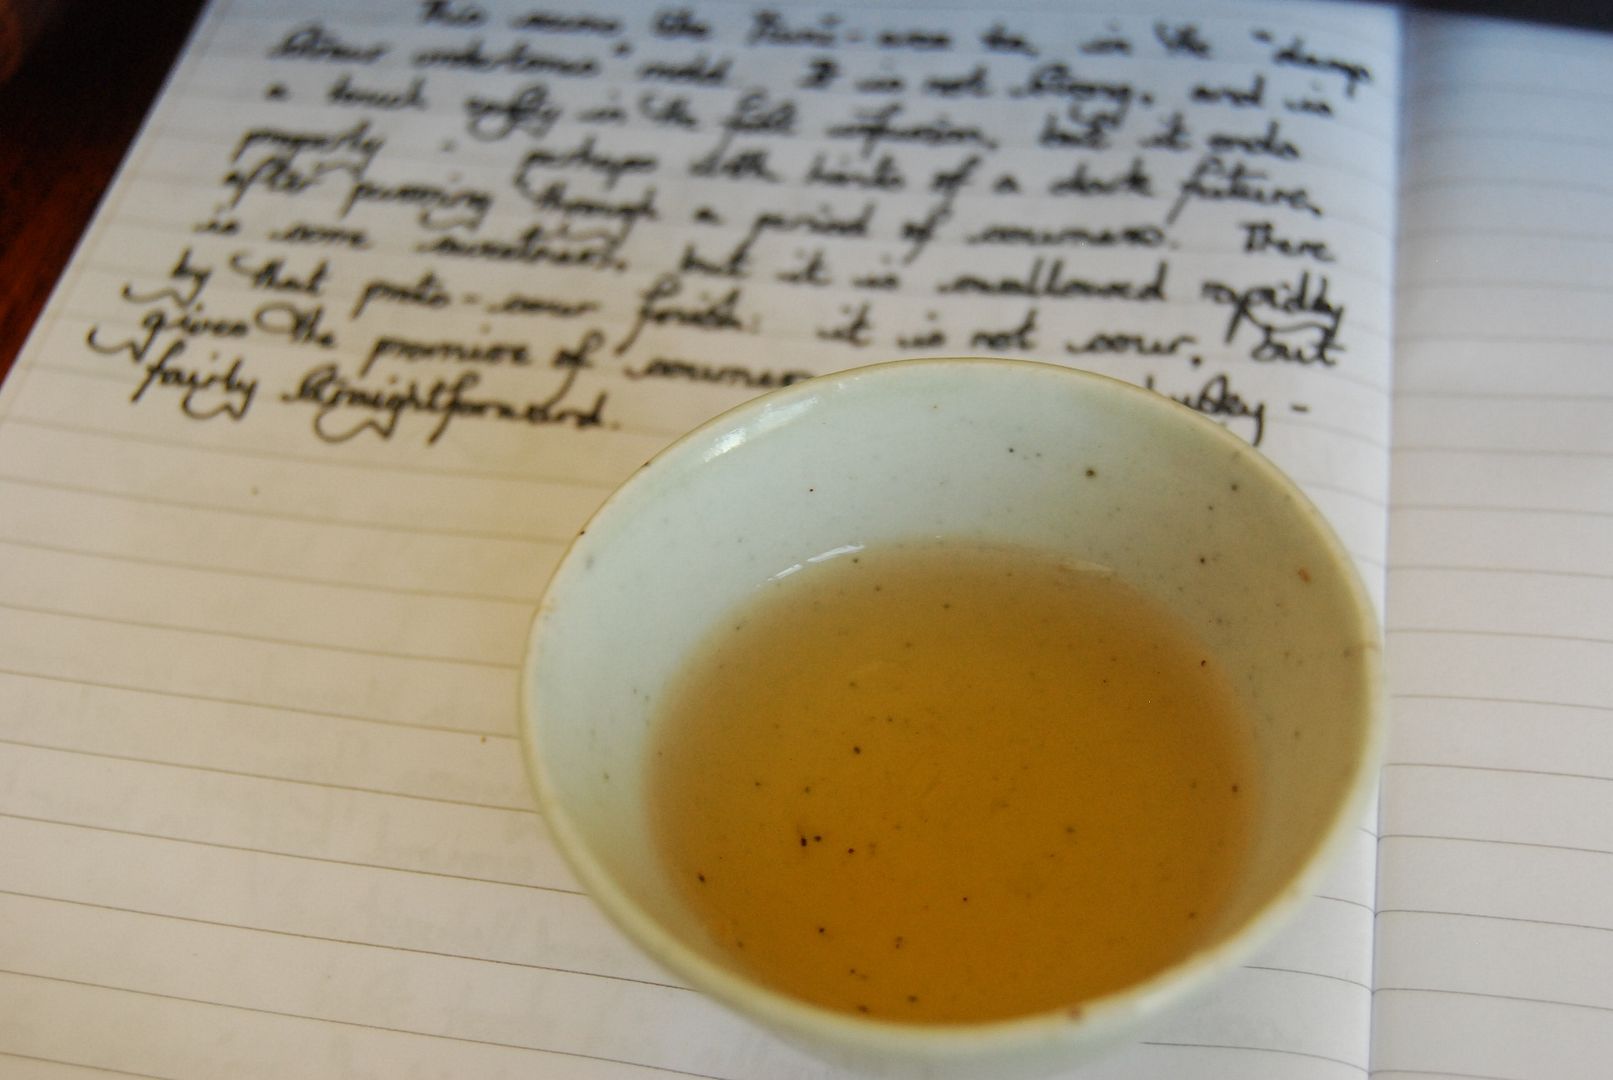 This means the is in the "damp
undertones" mold. It is not strong, and is
a touch in the full infusion, but it ends
properly - perhaps with hints of a dark future,
after passing through a period of sourness. There
is some sweetness, but it is swallowed rapidly
by that proto-sour finish: it is not sour, but
gives the promise of sourness
fairly straightforward.